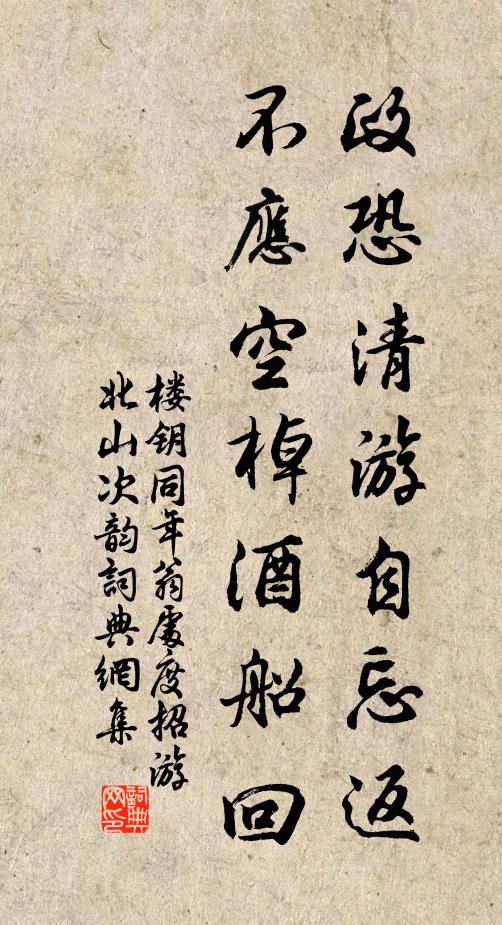 政恐清游自忘返
不應空棹酒船回
楼钥同年翁處度招游
北山次韵詞典網集
詞典网印